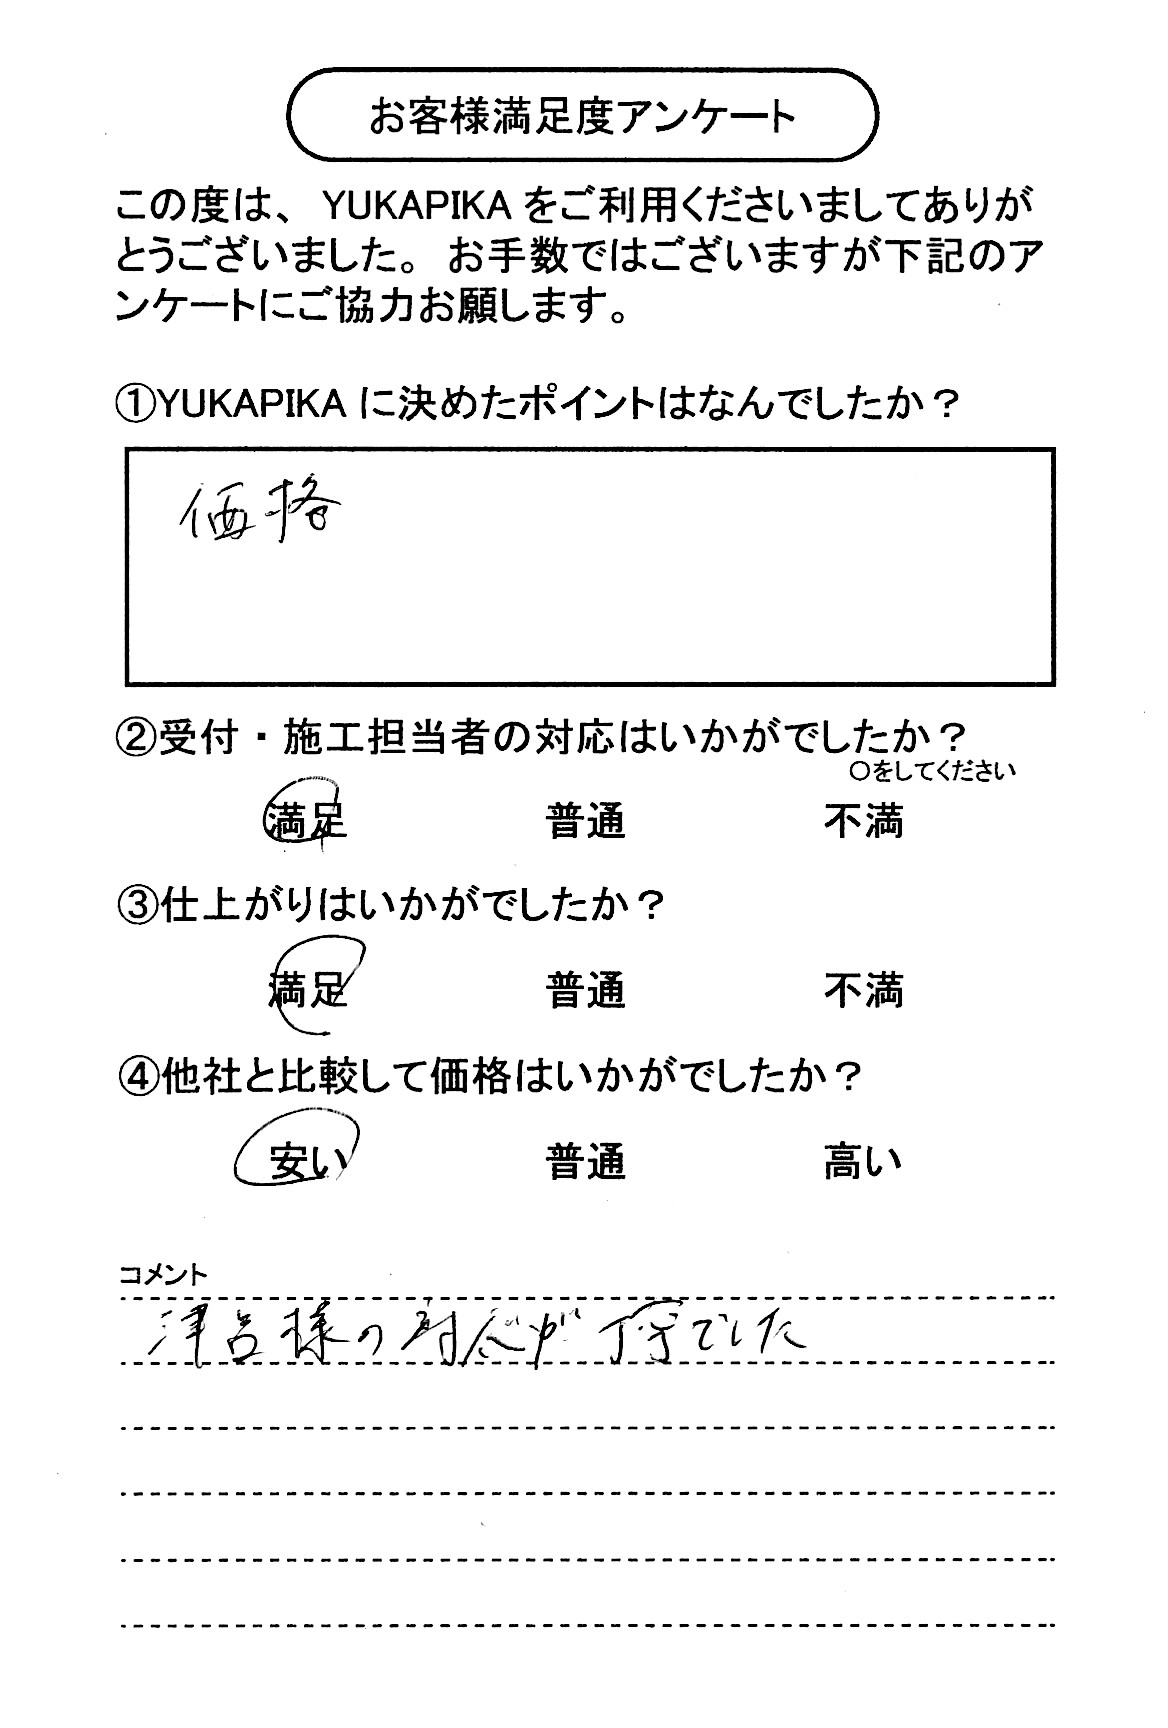 お客様満足度アンケート
この度は、YUKAPIKAをご利用くださいましてありが
とうございました。お手数ではございますが下記のア
ンケートにご協力お願します。
①YUKAPIKAに決めたポイントはなんでしたか？
価格
②受付・施工担当者の対応はいかがでしたか？
○をしてください
満足 普通 不満
③仕上がりはいかがでしたか？
満足 普通 不満
④他社と比較して価格はいかがでしたか？
安い 普通 高い
コメント
様の対応が丁寧でした